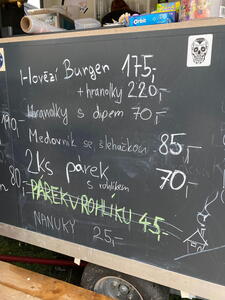 Orbit
Hovězí Burger 175,-
+ hranolky 220,-
Hranolky s dipem 70,-
Medovník se šlehačkou 85,-
2ks párek
s rohlíkem 70,-
80,-
PÁREK V ROHLÍKU 45,-
NANUKY 25,-